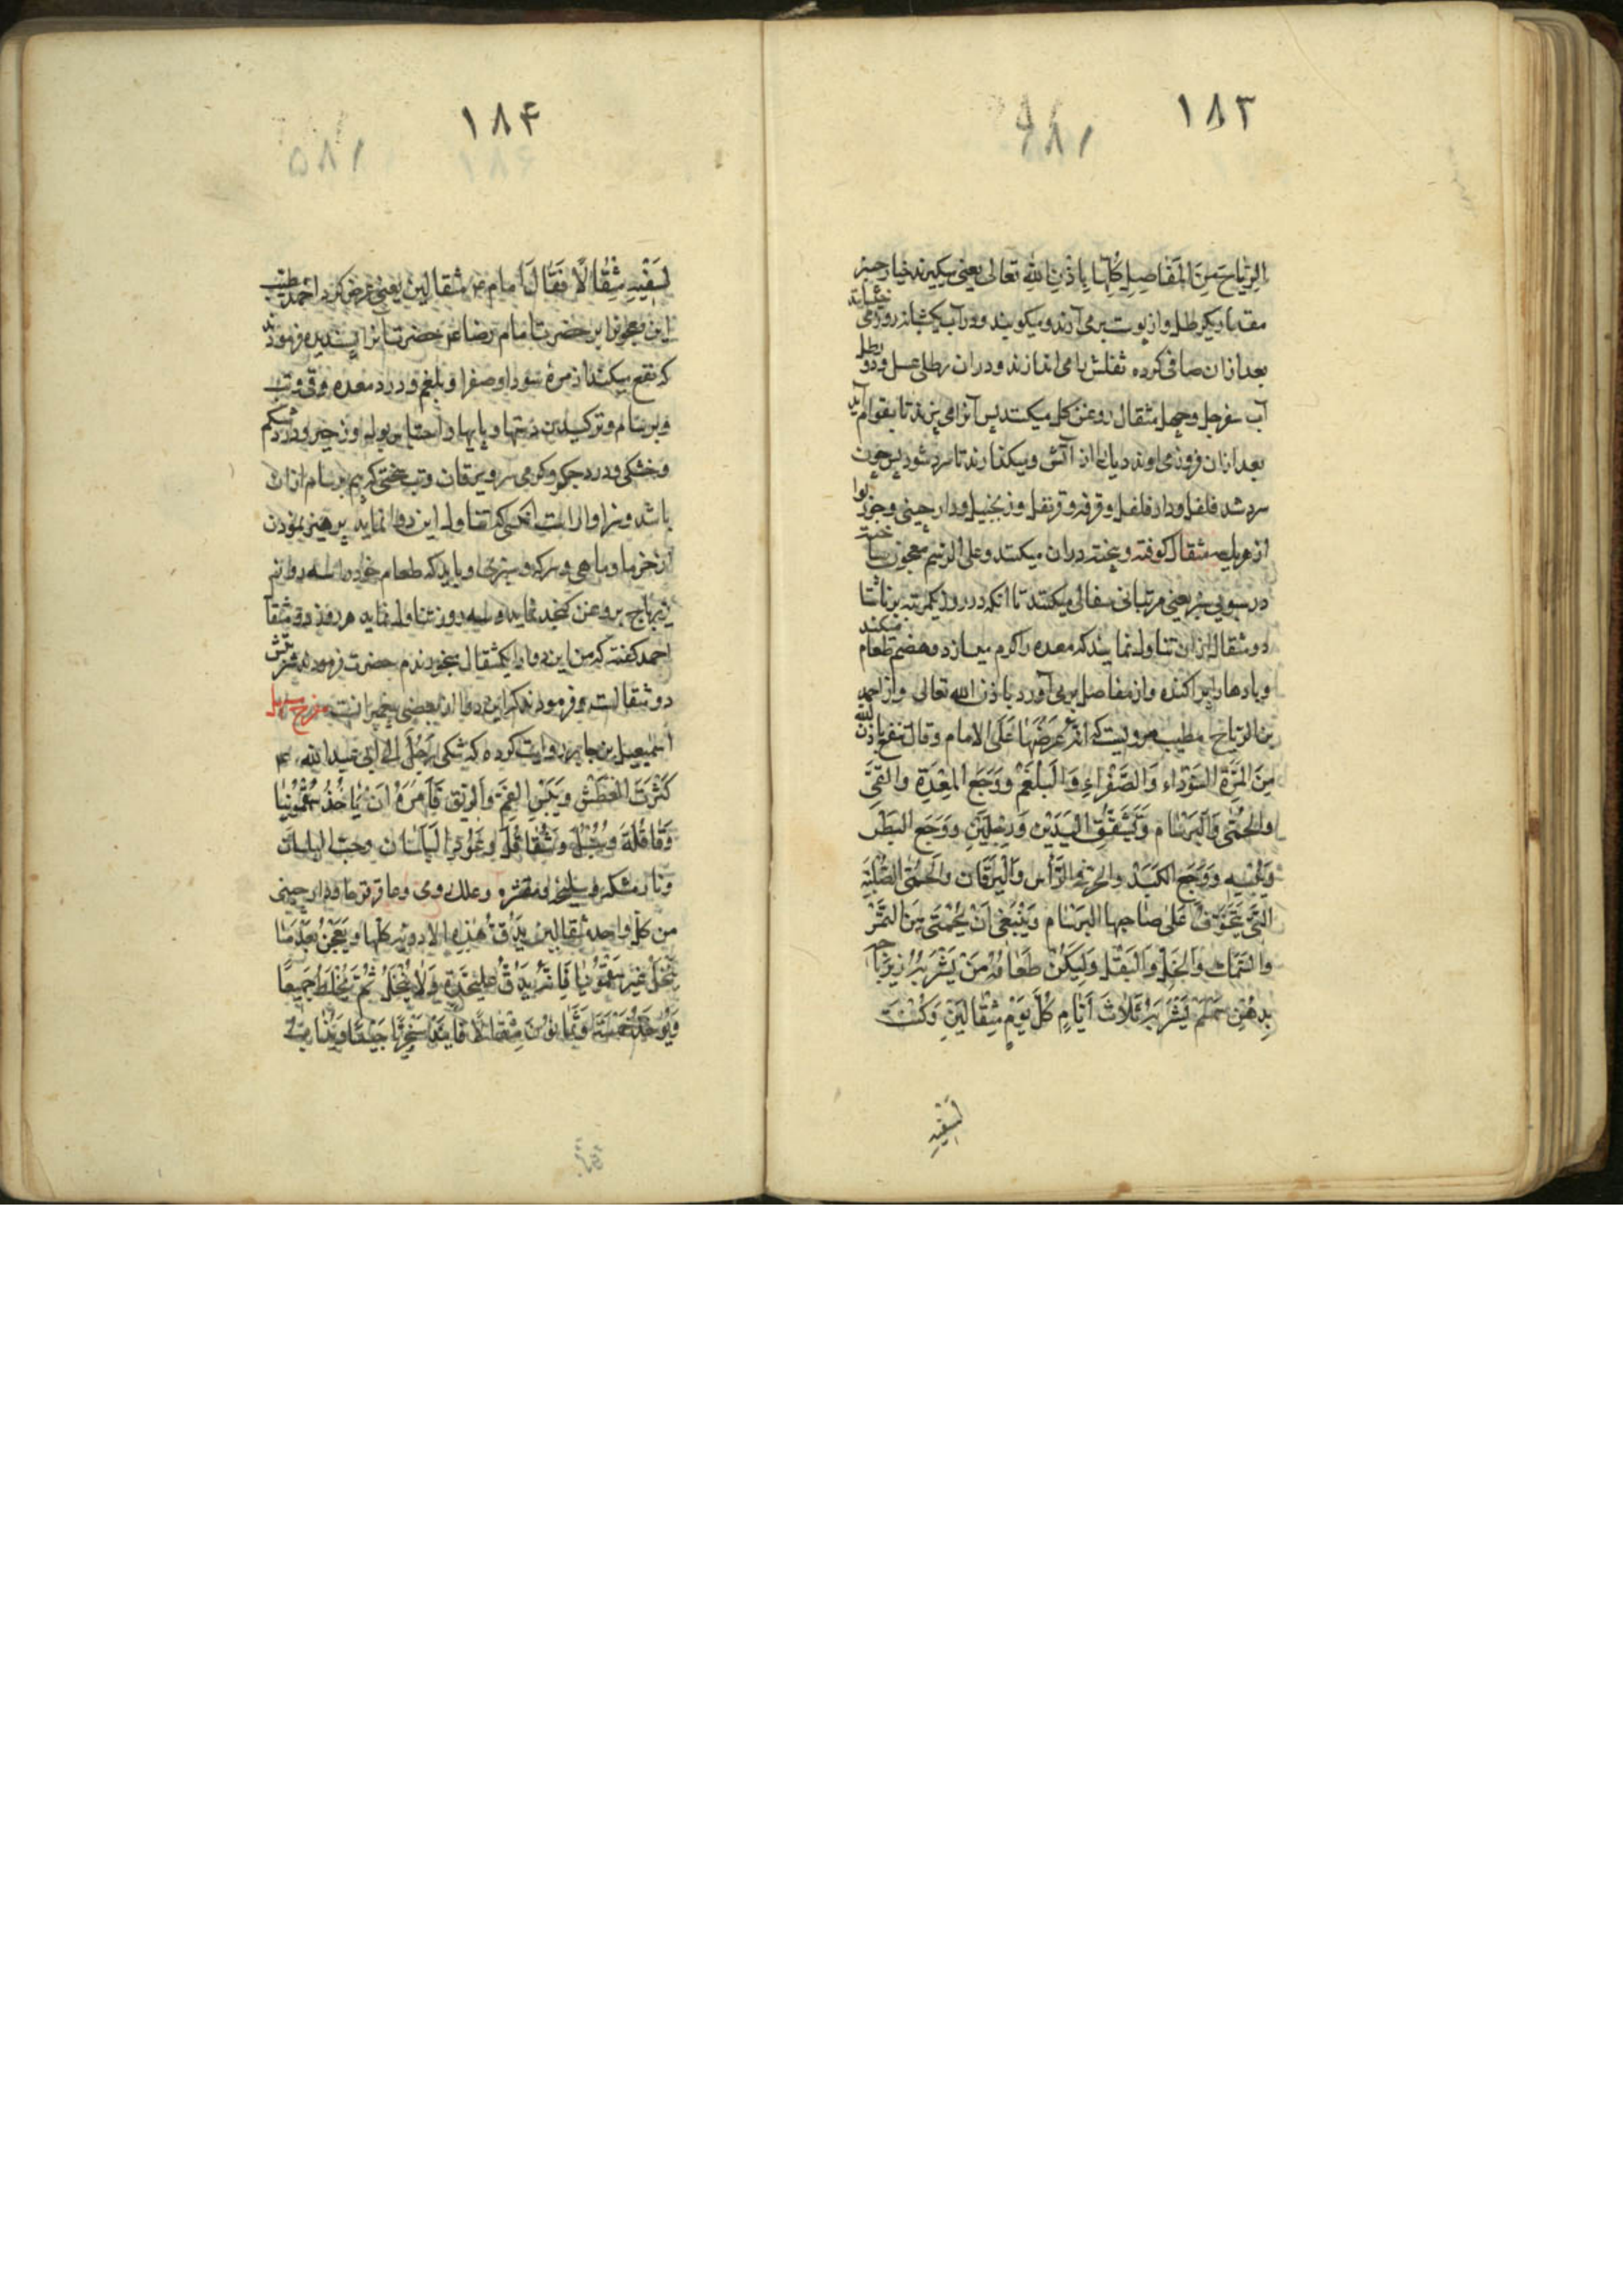 ١٨٣
الرِّیَاحَ مِنَ الْمَفَاصِلِ کُلِّهَا بِاِذْنِ اللهِ تعالی یعنی بگیرند خیار چنبر
مقدار یکرطل واز پوست برمی آرند ومیکوبند ودر آب یکشبانه روز می خیسانند
بعد ازان صافی کرده ثفلش را می اندازند ودران رطلی عسل ودو رطل
آب سفرجل وچهل مثقال روغن کل میکنند پس آنرا می پزند تا بقوام آید
بعد ازان فرود می آورند دیک را از آتش ومیکذارند تا سرد شود پس چون
سرد شد فلفل ودار فلفل وقرفه وقرنفل وزنجبیل ودارچینی وجوزبوا
از هر یک سه مثقال کوفته وبیخته دران میکنند وعلی الرسم معجون ساخته
در سبوی سبز یعنی مرتبانی سفالی میکنند تا انکه در روز یکمرتبه بر ناشتا
دو مثقال ازان تناول نمایند که معده را کرم میسازد وهضم طعام میکند
وبادها را پراکنده واز مفاصل برمی آورد باذن الله تعالی واز احمد
بن الریاح مطبب مرویست که اَنَّهُ عَرَضَهَا عَلَی الامام وقال تنفع باذن الله
مِنَ الْمِرَّةِ السَّوْدَاءِ وَالصَّفْرَاءِ وَالْبَلْغَمْ وَوَجَعِ الْمِعْدَةِ وَالْقِیَّ
والْحُمّی وَالْبَرْسَام وَتَشَقُّقِ الْیَدَیْنِ وَرِجْلَیْنِ وَوَجَعِ الْبَطْنِ
وَوَجَعِ الْکَبَدْ والْحَرّ فِی الرَّأْسِ وَالْیَرَقَان وَالْحُمَّی الصُّلْبَةِ
الَّتِی یَتَخَوَّفُ عَلَی صَاحِبِهَا الْبَرْسَام وَیَنْبَغِی اَنْ یُحْتَمَی مِنَ التَّمْرْ
والسَّمَک وَالْخَلِّ وَالْبَقْلِ وَلْیَکُنْ طَعَامُ مَنْ یَشْرَبُهُ زِیرَبَاجَه
بِدُهْنِ سِمْسِم یَشْرَبُهُ ثَلَاثَ اَیَّامٍ کُلَّ یَوْمٍ مِثْقَالَیْنِ وَکُنْتُ
اَسْقِیهِ
١٨۴
اَسْقِیْهِ مِثْقَالًا فَقَالَ امام ع مثقالین یعنی عرض کرد احمد طبیب
این معجون را بر حضرت امام رضا ع حضرت آنرا پسندیده فرمودند
که نفع میکند از مرهٔ سودا وصفرا وبلغم ودرد معده وقی وتب
وبرسام وترکیدن دستها وپایها واحتباس بول وزحیر ودرد شکم
وخشکی ودرد جکر وکرمی سر ویرقان وتب سختی که بیم برسام ازان
باشد وسزاوار است انکسی که تناول این دوا نماید پرهیز نمودن
از خرما وماهی وسرکه وسبزی وباید که طعام خود را سه روز
زیرباج بروغن کنجد نماید وسه روز تناول نماید هر روز دو مثقال
احمد کفته که من این دوا را یکمثقال میخورندم حضرت فرمود که شربتش
دو مثقالست وفرمودند که این دوا از بعضی پیغمبرانست
اسمعیل بن جابر روایت کرده که شکی رَجُلٌ اِلی اَبِی عبدالله ع
کَثْرَتَ الْعَطَشِ وَیَبْسِ الْفَمِ والرِّیقِ فَاَمَرَهُ اَنْ یَأْخُذَ سَقْمُونِیَا
وَقَاقُلَةَ وَسُنْبُلَ وَشَقَاقُل وَعُودَ الْبَلَسَان وحبّ البلسان
ونارمشک وسلیخه مقشره وعلک رومی وعاقرقرحا ودارچینی
من کل واحد مثقالین یُدَقُّ هٰذِهِ الادویة کلّها ویُعْجَنُ بَعْدَ مَا
یُنْخَلُ غَیْرَ سَقْمُونِیَا فَاِنَّهُ یُدَقُّ عَلَیحِدَةٍ وَلَا یُنْخَلُ ثُمَّ یُخْلَطُ جَمِیعًا
وَیُؤْخَذُ خَمْسَة وَثَمَانُونَ مِثْقَالًا فَانِیذ سَجْزِیّ جَیِّد وَیُذَابُ فی